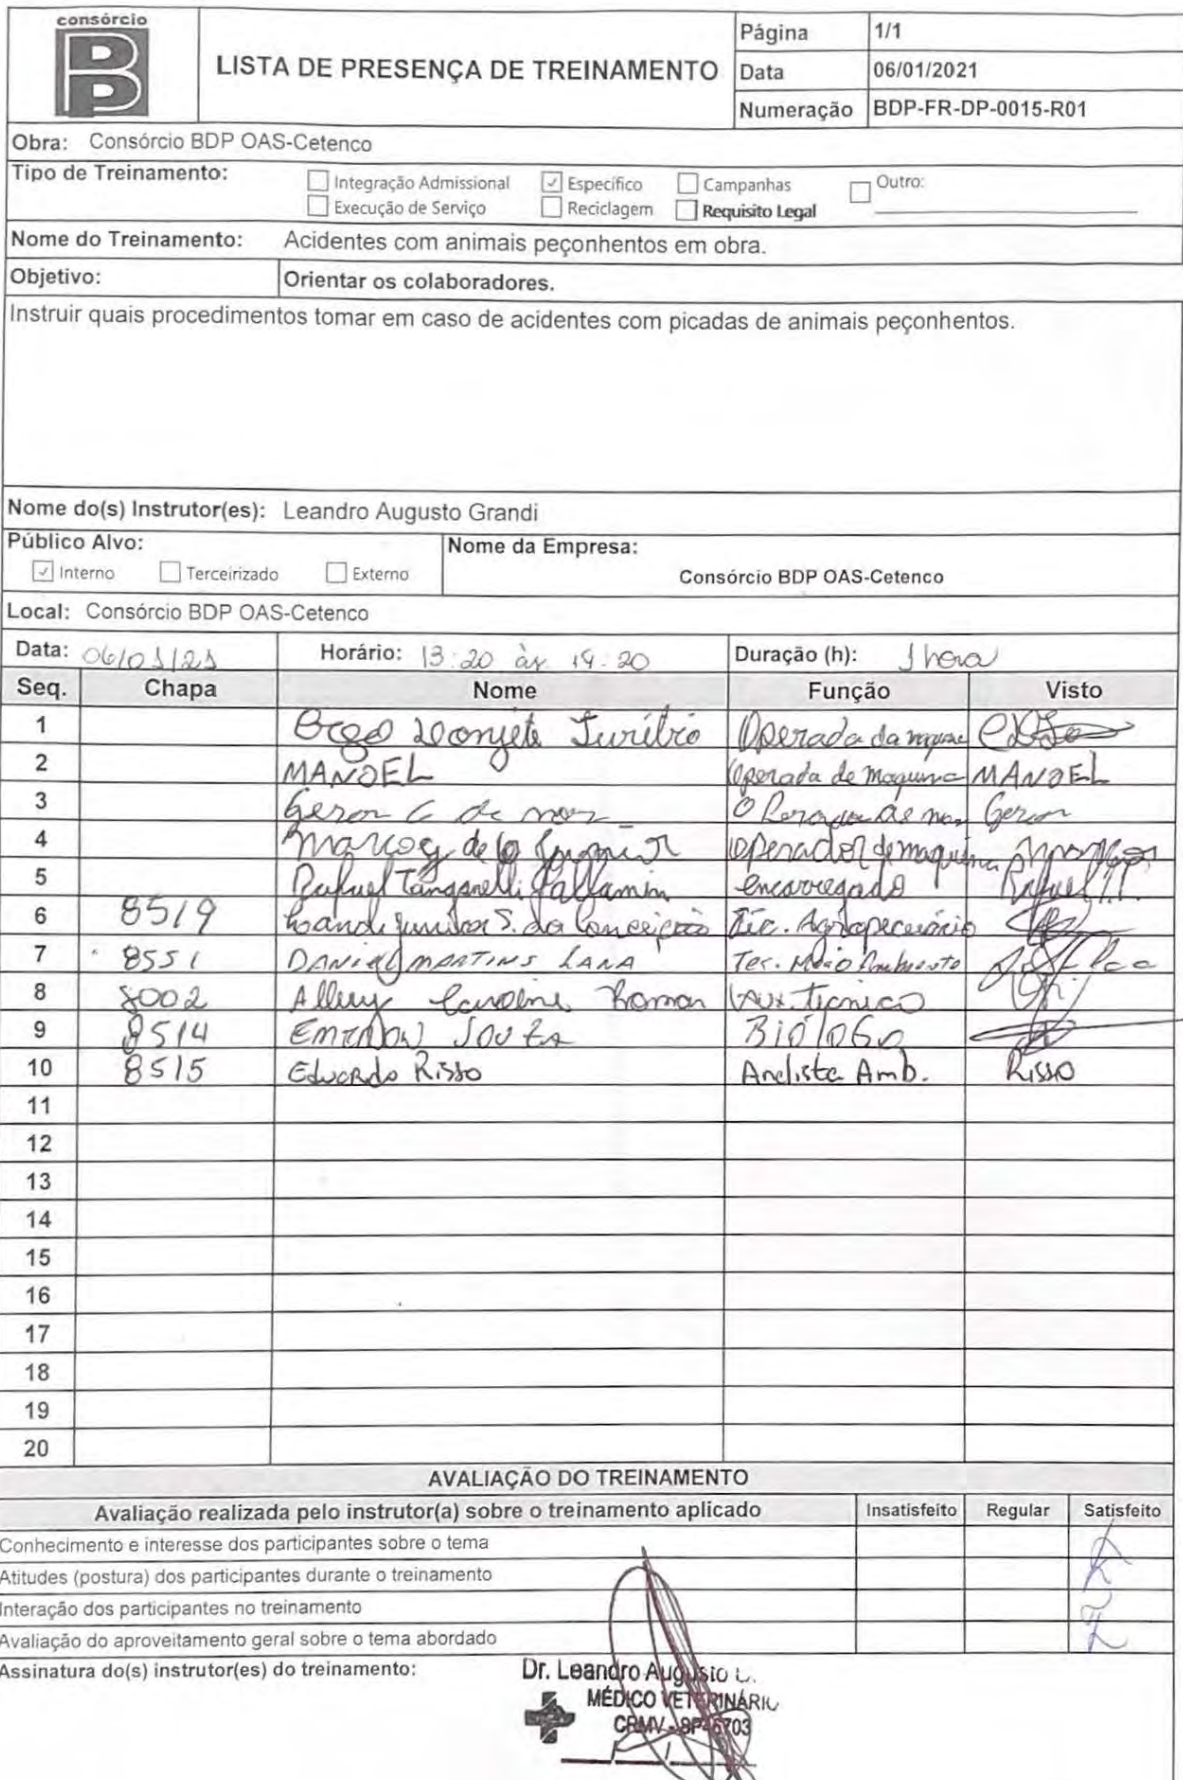 consórcio
BP
LISTA DE PRESENÇA DE TREINAMENTO
Página 1/1
Data 06/01/2021
Numeração BDP-FR-DP-0015-R01
Obra: Consórcio BDP OAS-Cetenco
Tipo de Treinamento:
Integração Admissional Específico Campanhas Outro:
Execução de Serviço Reciclagem Requisito Legal
Nome do Treinamento: Acidentes com animais peçonhentos em obra.
Objetivo: Orientar os colaboradores.
Instruir quais procedimentos tomar em caso de acidentes com picadas de animais peçonhentos.
Nome do(s) Instrutor(es): Leandro Augusto Grandi
Público Alvo: Nome da Empresa:
Interno Terceirizado Externo Consórcio BDP OAS-Cetenco
Local: Consórcio BDP OAS-Cetenco
Data: 06/01/21 Horário: 13:20 às 14:20 Duração (h): 1 hora
Seq. Chapa Nome Função Visto
1 Operada da
2 MANOEL Operada de Maquina MANOEL
3 Gerson de Gerson
4 Marcos de operador de maquina
5 Rafael Tanganelli encarregado Rafael
6 8519 Junior S. da Conceição Téc. Agropecuário
7 8551 DANIEL MARTINS LANA Tec. Meio Ambiente
8 8002 Caroline Roman Aux. Tecnico
9 8514 SOUZA BIÓLOGO
10 8515 Eduardo Risso Analista Amb. Risso
11
12
13
14
15
16
17
18
19
20
AVALIAÇÃO DO TREINAMENTO
Avaliação realizada pelo instrutor(a) sobre o treinamento aplicado Insatisfeito Regular Satisfeito
Conhecimento e interesse dos participantes sobre o tema
Atitudes (postura) dos participantes durante o treinamento
Interação dos participantes no treinamento
Avaliação do aproveitamento geral sobre o tema abordado
Assinatura do(s) instrutor(es) do treinamento:
Dr. Leandro Augusto
MÉDICO VETERINÁRIO
CRMV - SP